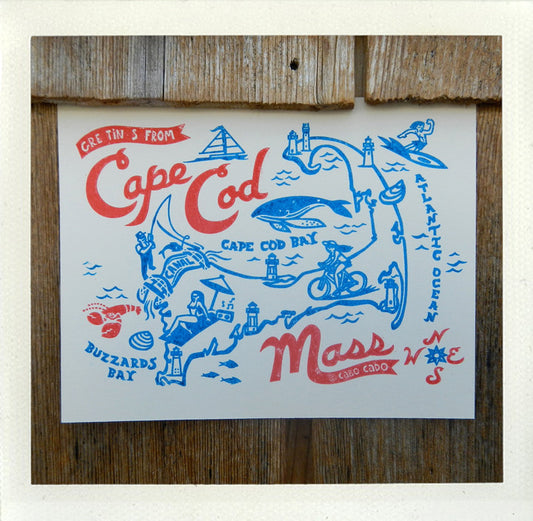 GRETIN S FROM
Cape Cod
CAPE COD BAY
ATLANTIC OCEAN
CANAL
BUZZARDS BAY
Mass
CABO CADO
N
W E
S